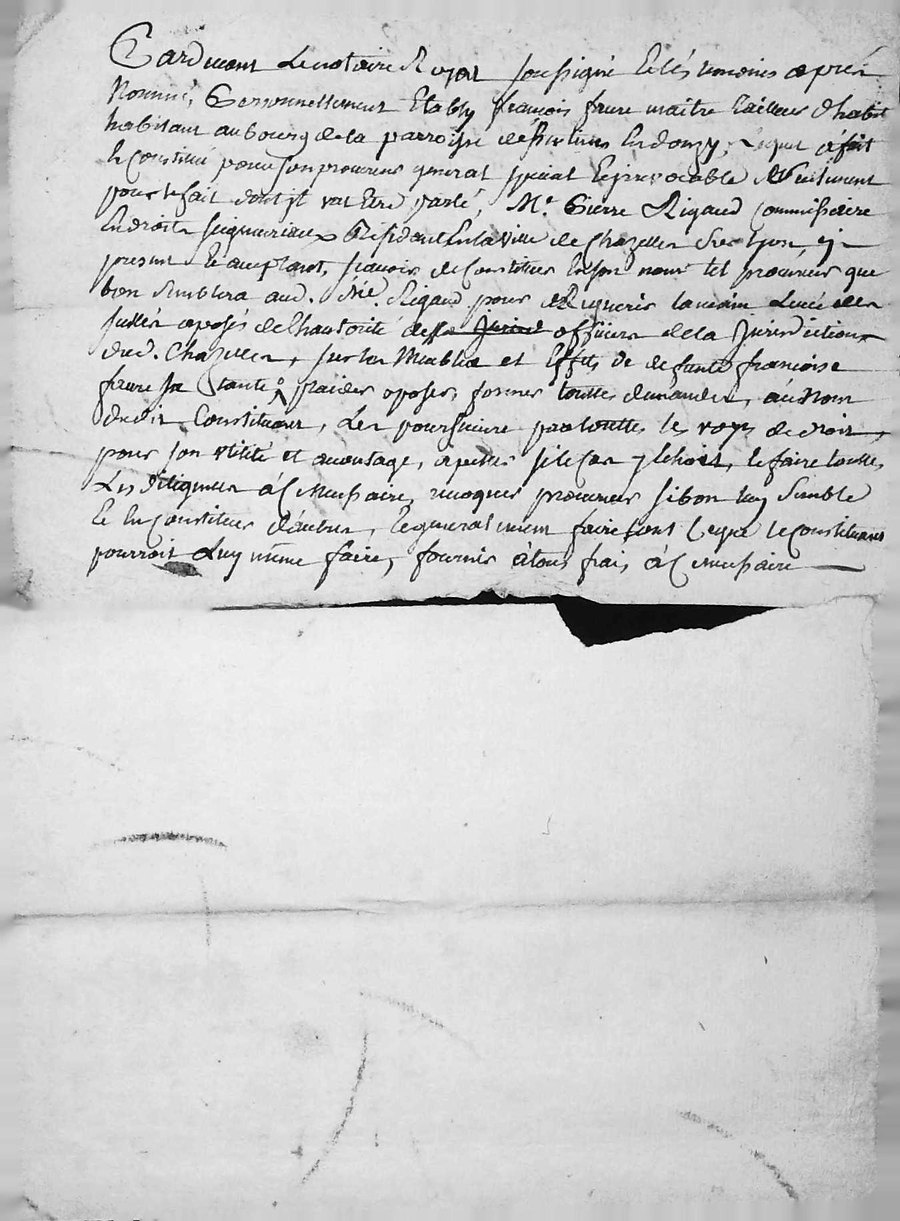 Pardevant Le notaire Royal soussigné Et les temoins apres
Nommé, Personnellement Etably françois freure maitre tailleur d'habit
habitant au bourg de la parroisse de en donzy, Lequel a fait
Et Constitué pour son procureur general special et irrevocable Seulement
pour le fait dont il va Etre parlé, Mr Pierre Rigaud Commissaire
En droits seigneuriaux Resident En la ville de Chazelles sur Lyon, icy
present Et acceptant, scavoir de Constituer En son nom tel procureur que
bon semblera aud. sr. Rigaud pour Requerir la main Levée des
scellés aposés de l'hautorité des officiers de la Jurisdiction
dud. Chazelles, sur les Meubles et Effets de defunte françoise
freure sa tante plaider, oposer, former touttes demandes, au Nom
dudit Constituant, Les poursuivre par touttes les voyes de droit,
pour son utilité et avantage, apeller si le Cas y Echoit, & faire touttes
Les diligences a Ce necessaire, revoquer procureur si bon luy semble
Et En Constituer d'autres, Et generalement faire tout Ce que le Constituant
pourroit Luy meme faire, fournir a tous frais a Ce necessaire